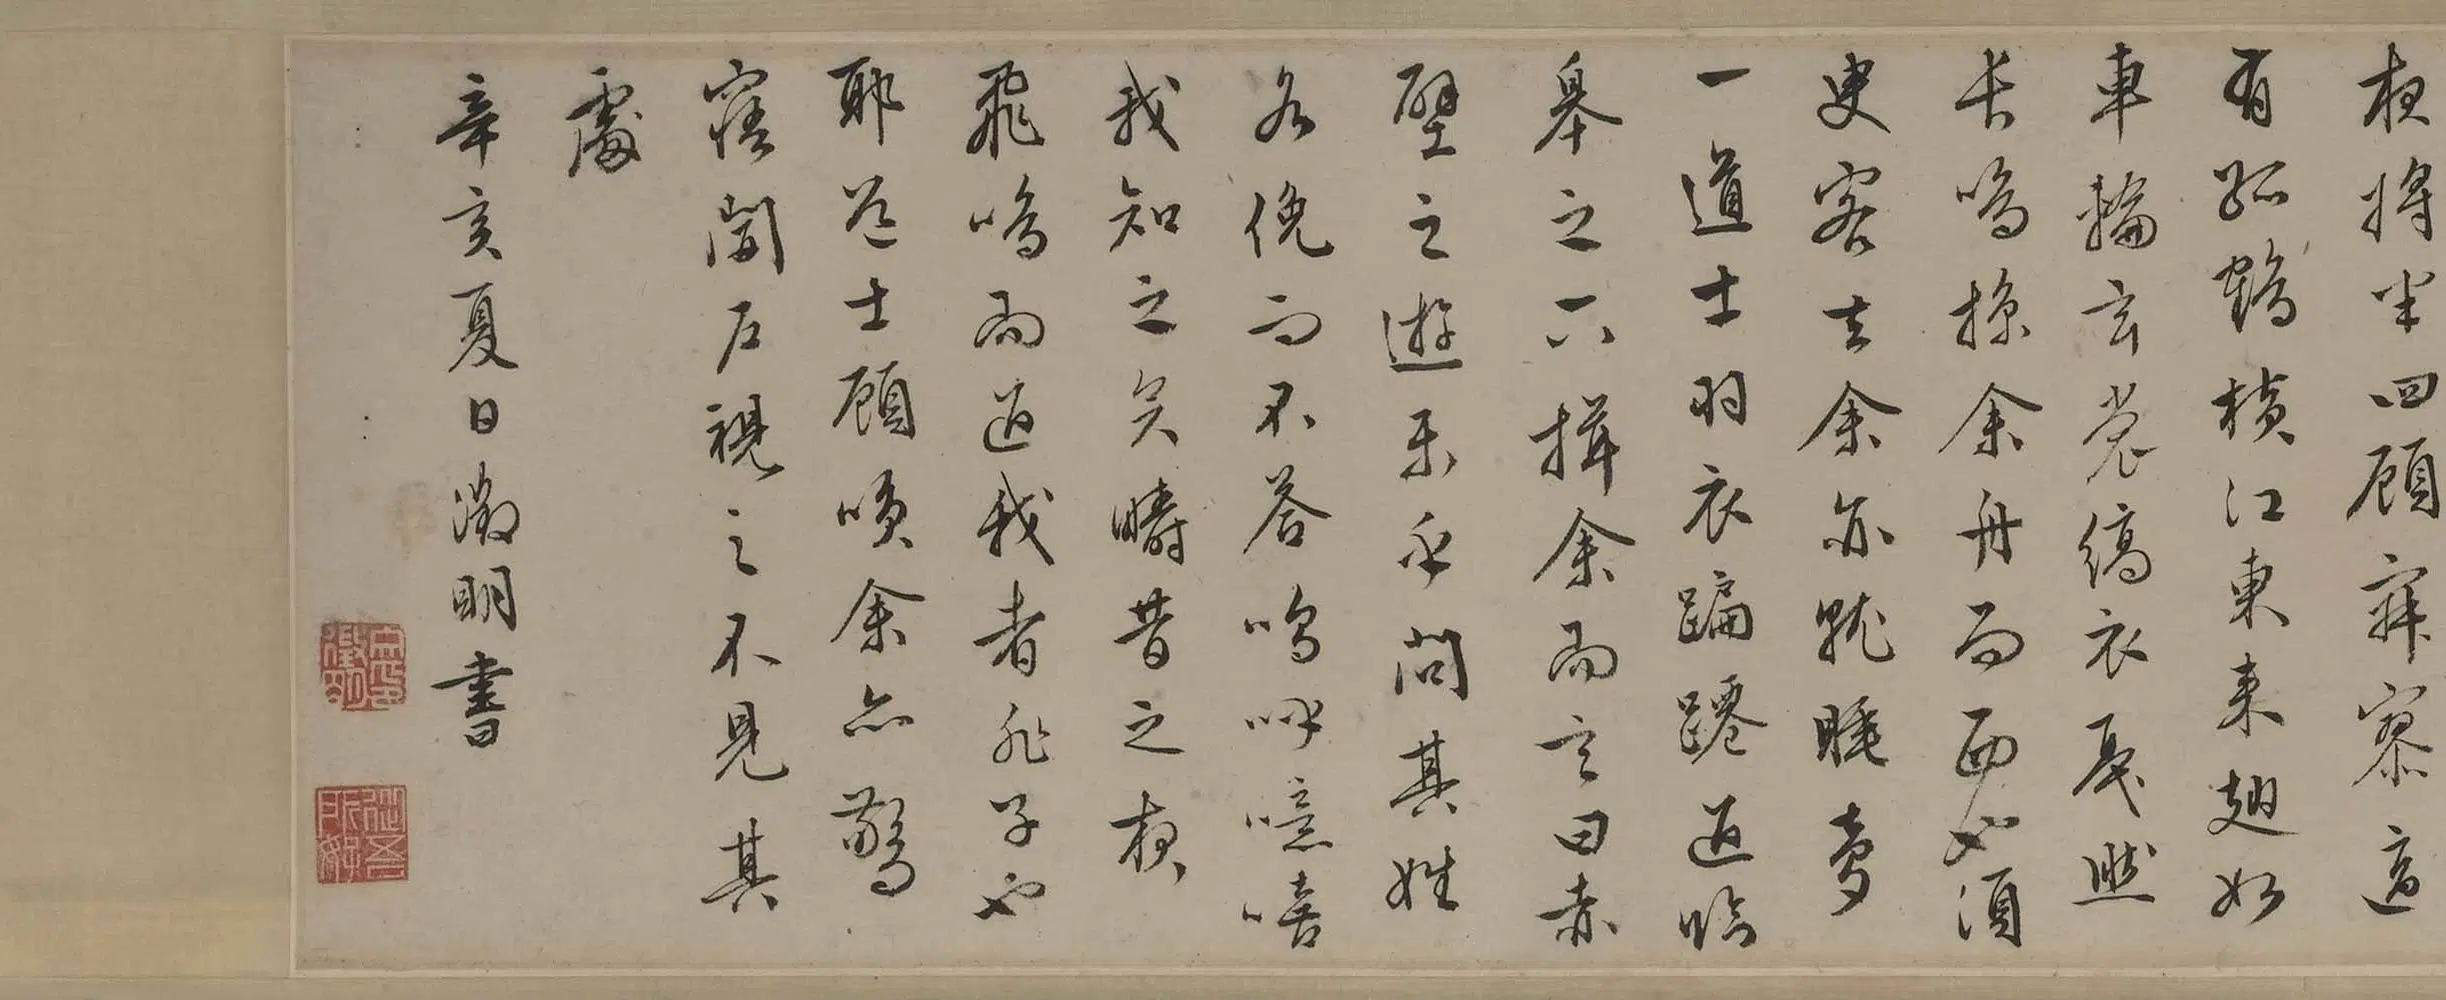 夜將半四顧寂寥適
有孤鶴橫江東來翅如
車輪玄裳縞衣戛然
長鳴掠余舟而西也須
臾客去余亦就睡夢
一道士羽衣蹁躚過臨
皋之下揖余而言曰赤
壁之遊樂乎問其姓
名俛而不答嗚呼噫嘻
我知之矣疇昔之夜
飛鳴而過我者非子也
耶道士顧笑余亦驚
寤開戶視之不見其
處
辛亥夏日徵明書